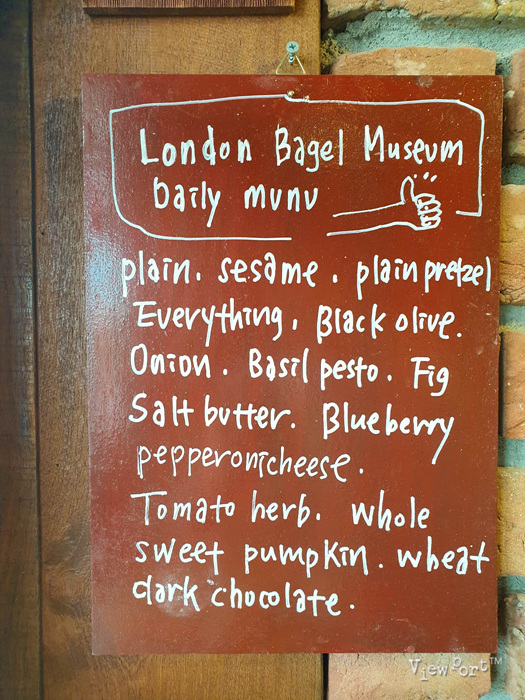 London Bagel Museum
Daily munu
plain. sesame. plain pretzel
Everything. Black olive.
Onion. Basil pesto. Fig
Salt butter. Blueberry
pepperonicheese.
Tomato herb. whole
sweet pumpkin. wheat
dark chocolate.
ViewPort™